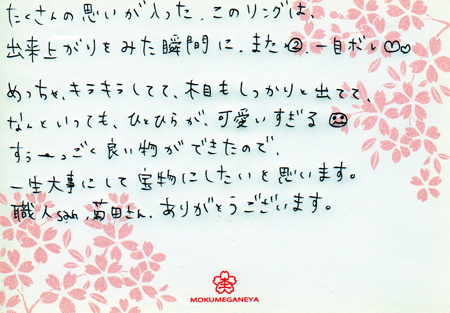 たくさんの思いが入った、このリングは、
出来上がりをみた瞬間に、また②、一目ボレ♡♡
めっちゃ、キラキラしてて、木目もしっかりと出てて、
なんといっても、ひとひらが、可愛いすぎる
すぅーっごく良い物ができたので、
一生大事にして宝物にしたいと思います。
職人san、菊田さん、ありがとうございます。
MOKUMEGANEYA